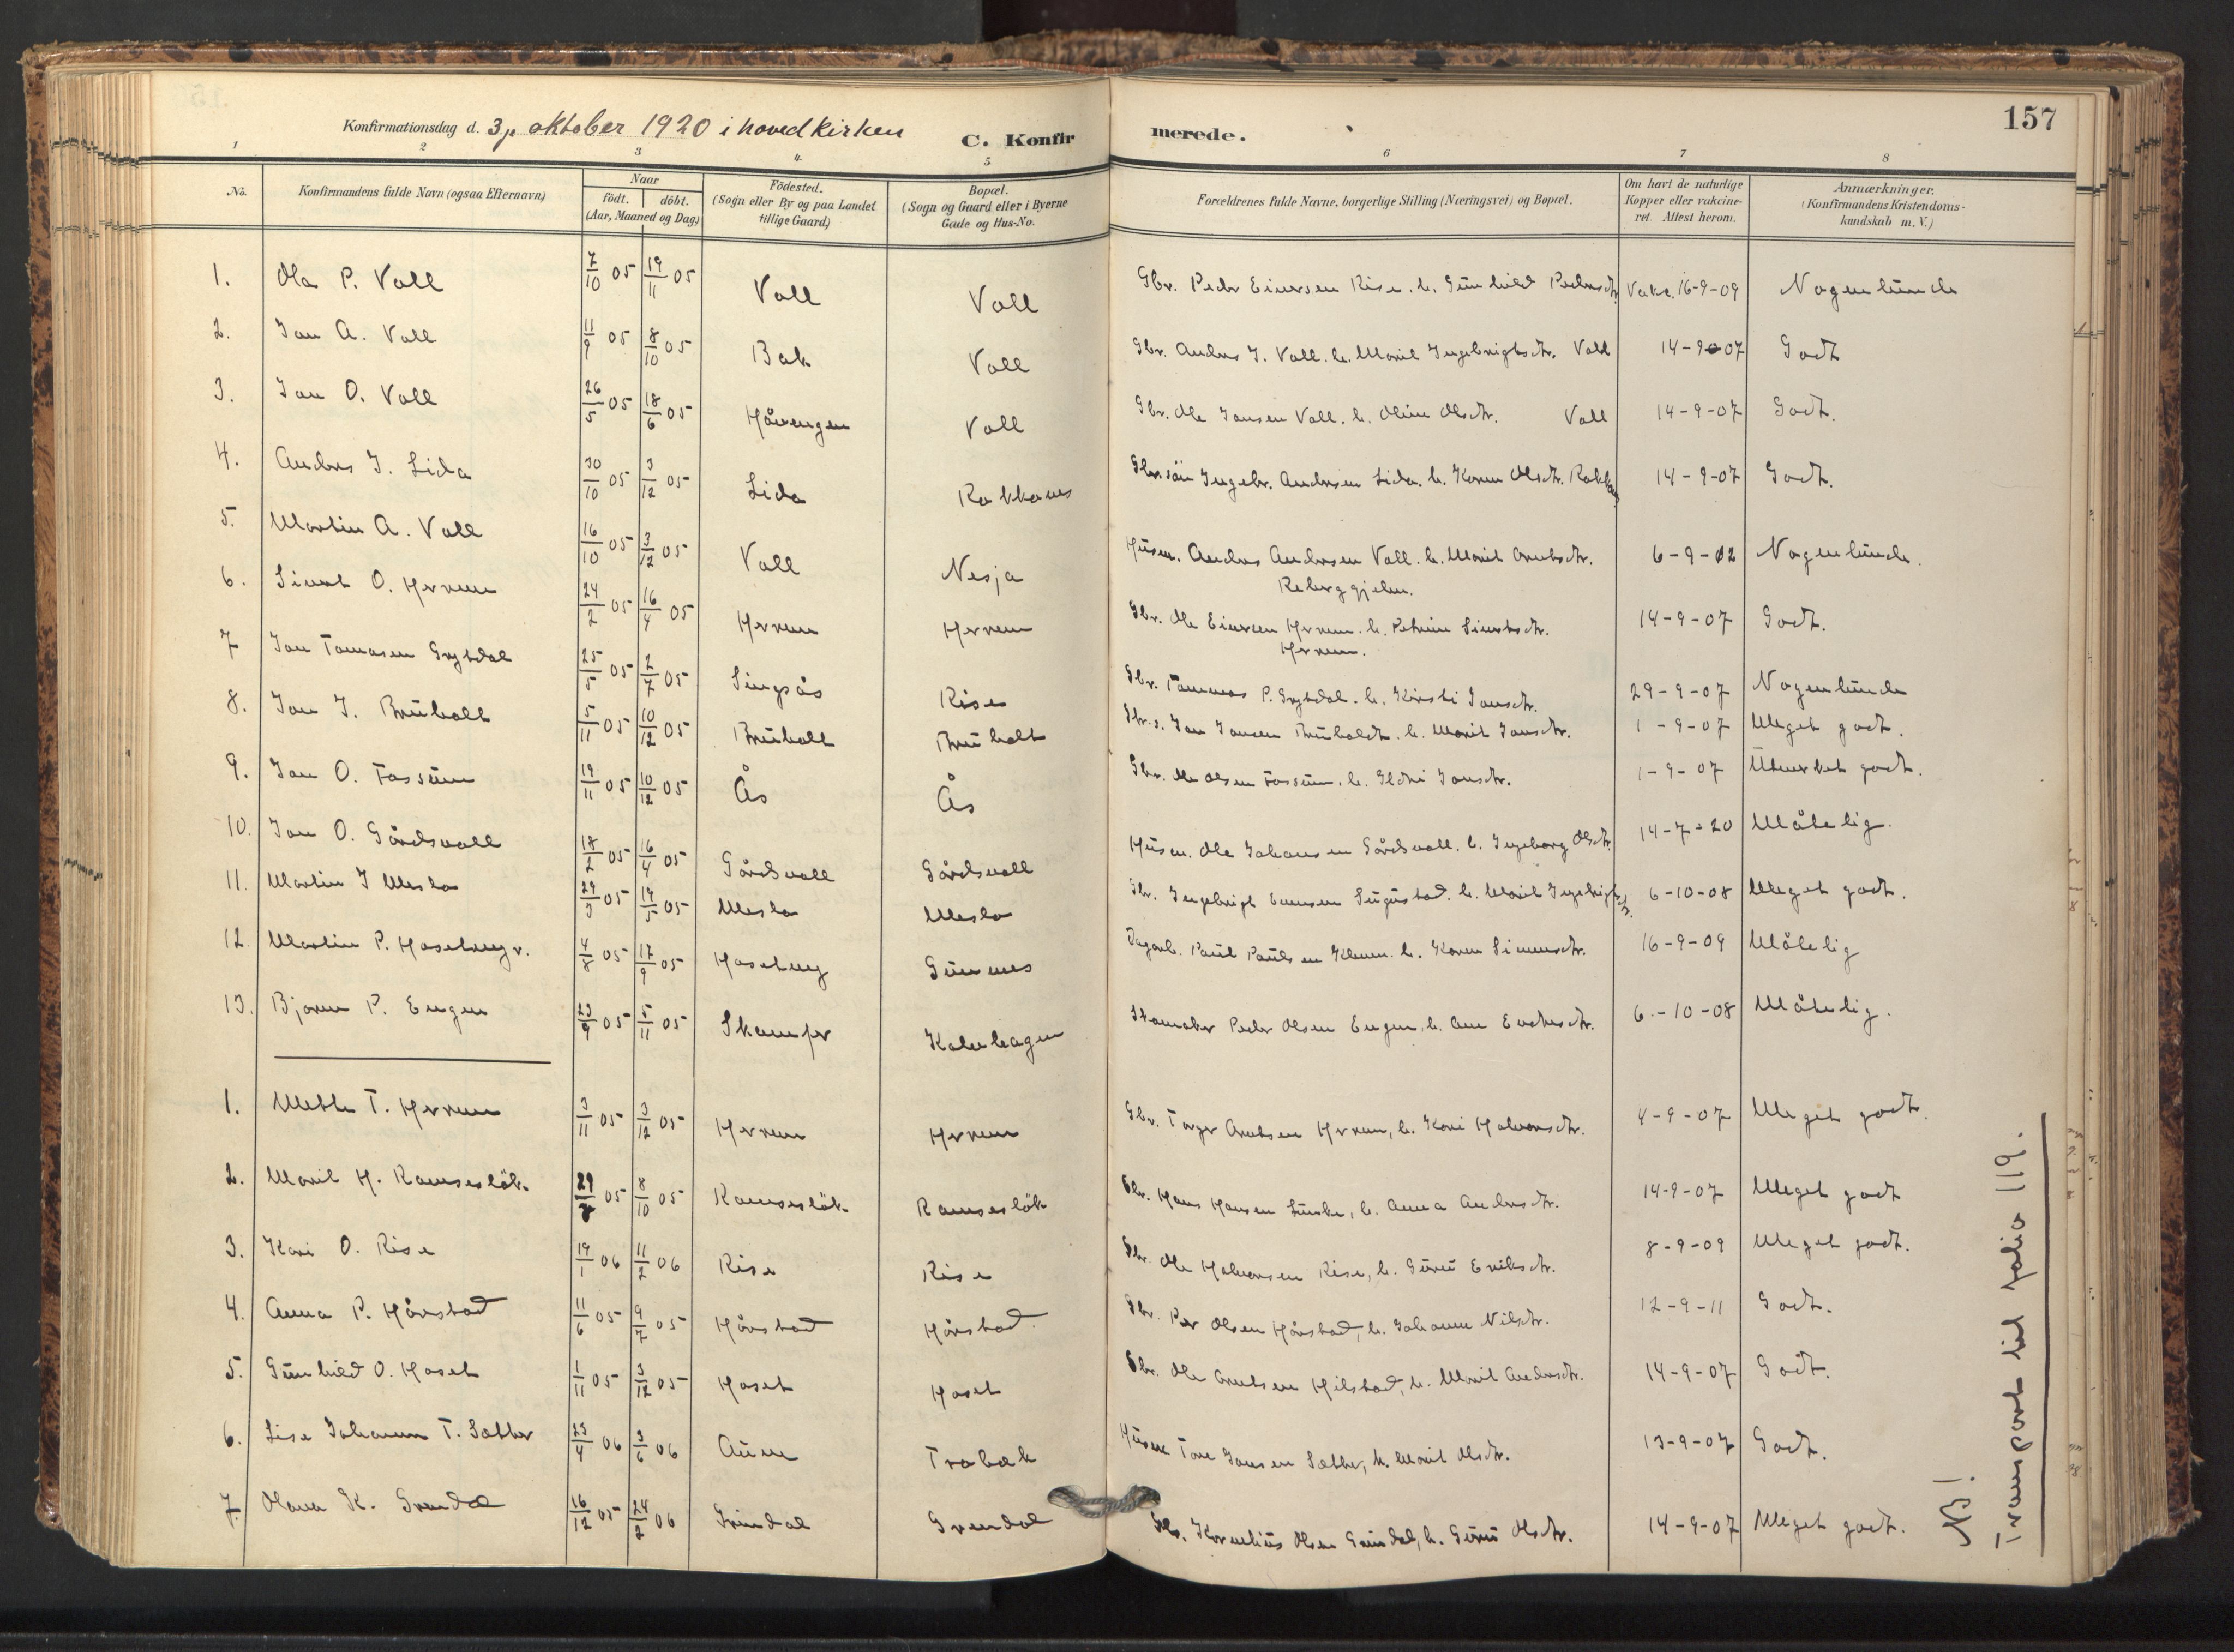 157
Konfirmationsdag d. 3/ oktober 1920 i hovedkirken
C. Konfirmerede.
1 2 3 4 5 6 7 8
No. Konfirmandens fulde Navn (ogsaa Efternavn) Naar født. døbt. (Aar, Maaned og Dag) Fødested. (Sogn eller By og paa Landet tillige Gaard) Bopæl. (Sogn og Gaard eller i Byerne Gade og Hus-No. Forældrenes fulde Navne, borgerlige Stilling (Næringsvei) og Bopæl. Om havt de naturlige Kopper eller vaksineret. Attest herom. Anmærkninger. (Konfirmandens Kristendomskundskab m. V.)
1. Ola P. Voll 7/10 05 19/11 05 Voll Voll Gbr. Peder Eiversen Rise. h. Gunhild Pedersdtr. Vakc. 16-9-09 Nogenlunde
2. Jon A. Voll 11/9 05 8/10 05 Bak Voll Gbr. Anders J. Voll. h. Marit Ingebrigtsdtr. Voll 14-9-07 Godt
3. Jon O. Voll 26/5 05 18/6 05 Håvengen Voll Gbr. Ole Jonsen Voll. h. Oline Olsdtr. Voll 14-9-07 Godt.
4. Anders I. Lida 30/10 05 3/12 05 Lida Ingebr. Andersen Lida. h. Karen Olsdtr. 14-9-07 Godt.
5. Martin A. Voll 16/10 05 3/12 05 Voll Nesja Husm. Anders Andersen Voll. h. Marit Arntsdtr. 6-9-12 Nogenlunde.
Reberggjelen.
6. Sivert O. Herrem 24/2 05 16/4 05 Herrem Herrem Gbr. Ole Eiversen Herrem. h. Petrine Sivertsdtr. 14-9-07 Godt.
Herrem.
7 Jon Tomasen Grytdal 25/5 05 2/7 05 Singsås Rise Gbr. Tommas P. Grytdal. h. Kirsti Jonsdtr. 29-9-07 Nogenlunde
8. Jon J. Bruholt 5/11 05 10/12 05 Bruholt Bruholt Gbr.s. Jon Jonsen Bruholdt. h. Marit Jonsdtr. 1-9-07 Meget godt.
9. Jon O. Fossum 19/11 05 10/12 05 Ås Ås Gbr. Ole Olsen Fossum. h. Eldri Jonsdtr. 1-9-07 Utmerket godt.
10. Jon O. Gårdsvoll 18/2 05 16/4 05 Gårdsvoll Gårdsvoll Husm. Ole Johansen Gårdsvoll. h. Ingeborg Olsdtr. 14-7-20 Måtelig.
11. Martin I Meslo 29/3 05 14/5 05 Meslo Meslo Gbr. Ingebrigt h. Marit Ingebrigtsdtr. 6-10-08 Meget godt.
12. Martin P. 4/8 05 17/9 05 Gunnes Dagarb. Paul Paulsen h. Karen 16-9-09 Måtelig
13. Bjarne P. Engen 23/9 05 5/11 05 Kalvhagen Skomaker Peder Olsen Engen, h. Ane 6-10-08 Måtelig.
1. Mette T. Herrem 3/11 05 3/12 05 Herrem Herrem Gbr. Torger Arntsen Herrem, h. Kari Halvorsdtr. 4-9-07 Meget godt.
2. Marit H. Ramsesløk. 29/8 05 8/10 05 Ramsesløk. Ramsesløk Gbr. Hans Hansen h. Anna Andersdtr. 14-9-07 Meget godt
3. Kari O. Rise 19/1 06 11/2 06 Rise Rise Gbr. Ole Halvorsen Rise, h. Guru Eriksdtr. 8-9-09 Meget godt.
4. Anna P. Hårstad 11/6 05 9/7 05 Hårstad Hårstad. Gbr. Per Olsen Hårstad, h. Johanne Nilsdtr. 12-9-11 Godt.
5. Gunhild O. Hoset 1/11 05 3/12 05 Hoset Hoset Gbr. Ole Arntsen Hilstad, h. Marit Andersdtr. 14-9-07 Godt.
6. Lise Johanne T. Sæther 23/4 06 3/6 06 Aune Trobak Husm Tore Jonsen Sæther, h. Marit Olsdtr. 13-9-07 Godt.
7 Olava K. Grindal 16/12 05 24/2 06 Grindal Grindal Gbr. Kornelius Olsen Grindal, h. Guru Olsdtr. 14-9-07 Meget godt.
NB!
Transport til folio 119.